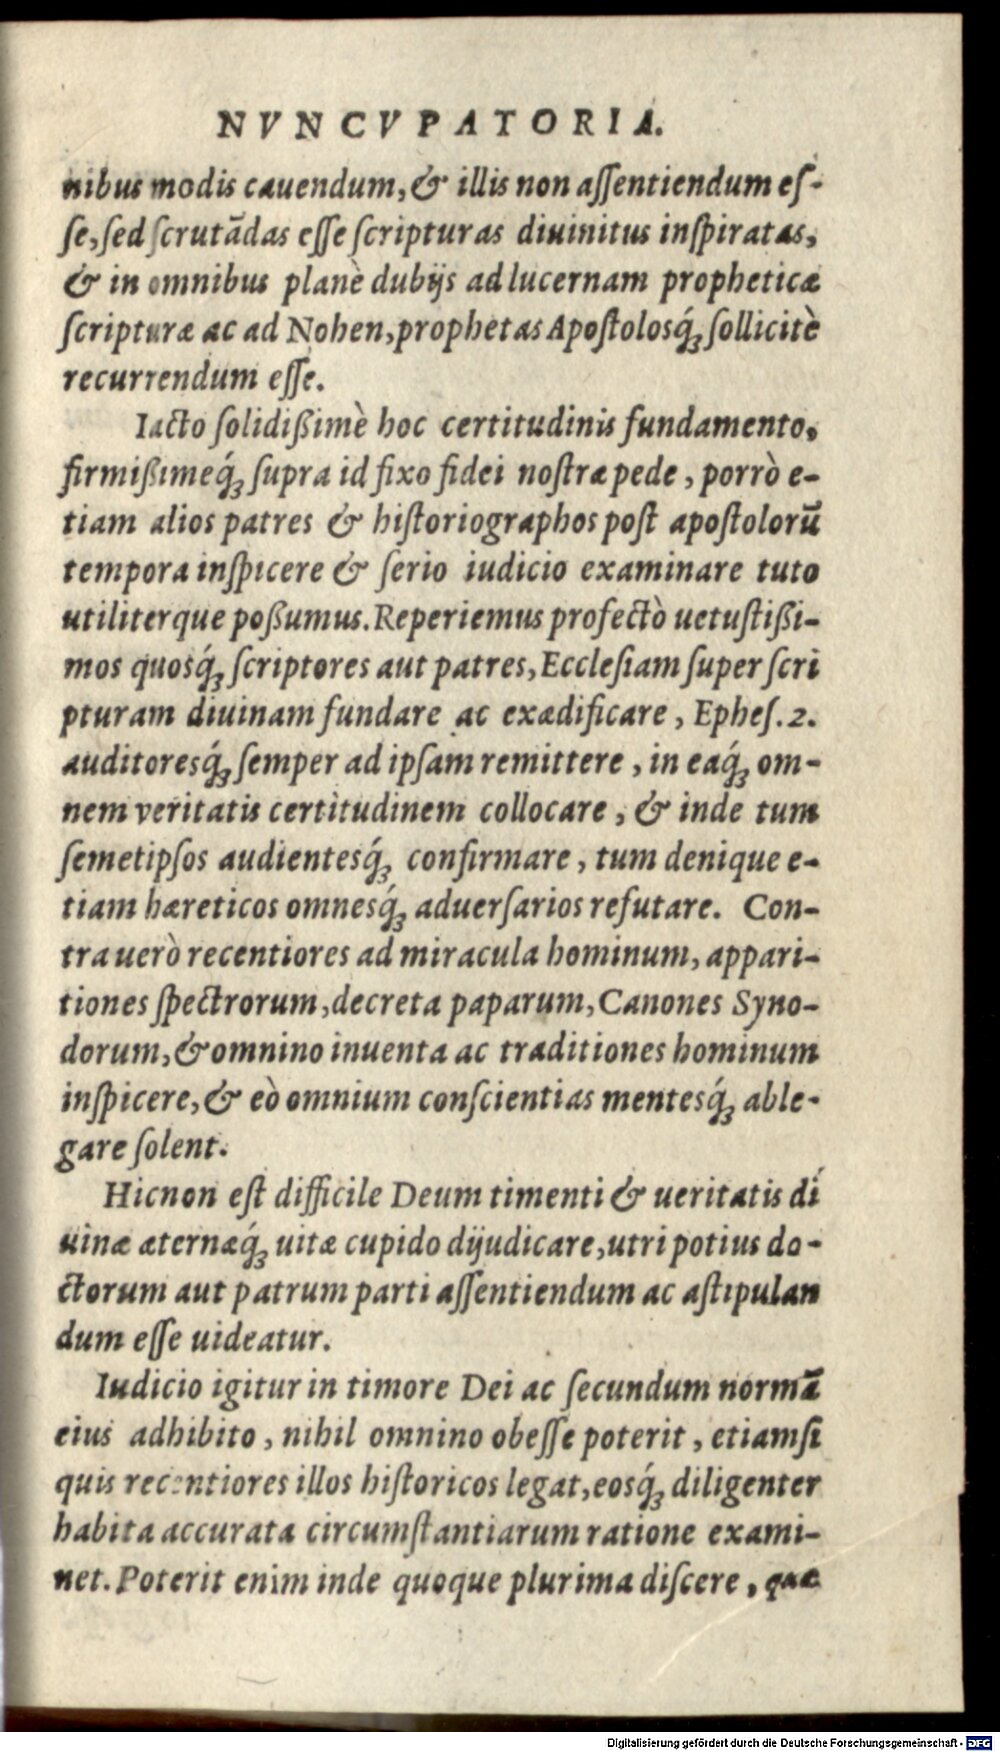 NVNCVPATORIA.
nibus modis cauendum, & illis non aſſentiendum eſ-
ſe, ſed ſcrutãdas eſſe ſcripturas diuinitus inſpiratas,
& in omnibus planè dubijs ad lucernam propheticæ
ſcripturæ ac ad Nohen, prophetas Apoſtolosq́ꝫ ſollicitè
recurrendum eſſe.
Iacto ſolidißimè hoc certitudinis fundamento,
firmißimeq́ꝫ ſupra id fixo fidei noſtræ pede, porrò e-
tiam alios patres & hiſtoriographos poſt apoſtolorũ
tempora inſpicere & ſerio iudicio examinare tuto
utiliterque poßumus. Reperiemus profectò uetuſtißi-
mos quosq́ꝫ ſcriptores aut patres, Eccleſiam ſuper ſcri
pturam diuinam fundare ac exædificare, Epheſ. 2.
auditoresq́ꝫ ſemper ad ipſam remittere, in eaq́ꝫ om-
nem veritatis certitudinem collocare, & inde tum
ſemetipſos audientesq́ꝫ confirmare, tum denique e-
tiam hæreticos omnesq́ꝫ aduerſarios refutare. Con-
tra uerò recentiores ad miracula hominum, appari-
tiones ſpectrorum, decreta paparum, Canones Syno-
dorum, & omnino inuenta ac traditiones hominum
inſpicere, & eò omnium conſcientias mentesq́ꝫ able-
gare ſolent.
Hic non eſt difficile Deum timenti & ueritatis di
uinæ æternæq́ꝫ uitæ cupido dijudicare, utri potius do-
ctorum aut patrum parti aſſentiendum ac aſtipulan
dum eſſe uideatur.
Iudicio igitur in timore Dei ac ſecundum normã
eius adhibito, nihil omnino obeſſe poterit, etiamſi
quis recentiores illos hiſtoricos legat, eosq́ꝫ diligenter
habita accurata circumſtantiarum ratione exami-
net. Poterit enim inde quoque plurima diſcere, quæ
Digitalisierung gefördert durch die Deutsche Forschungsgemeinschaft - DFG